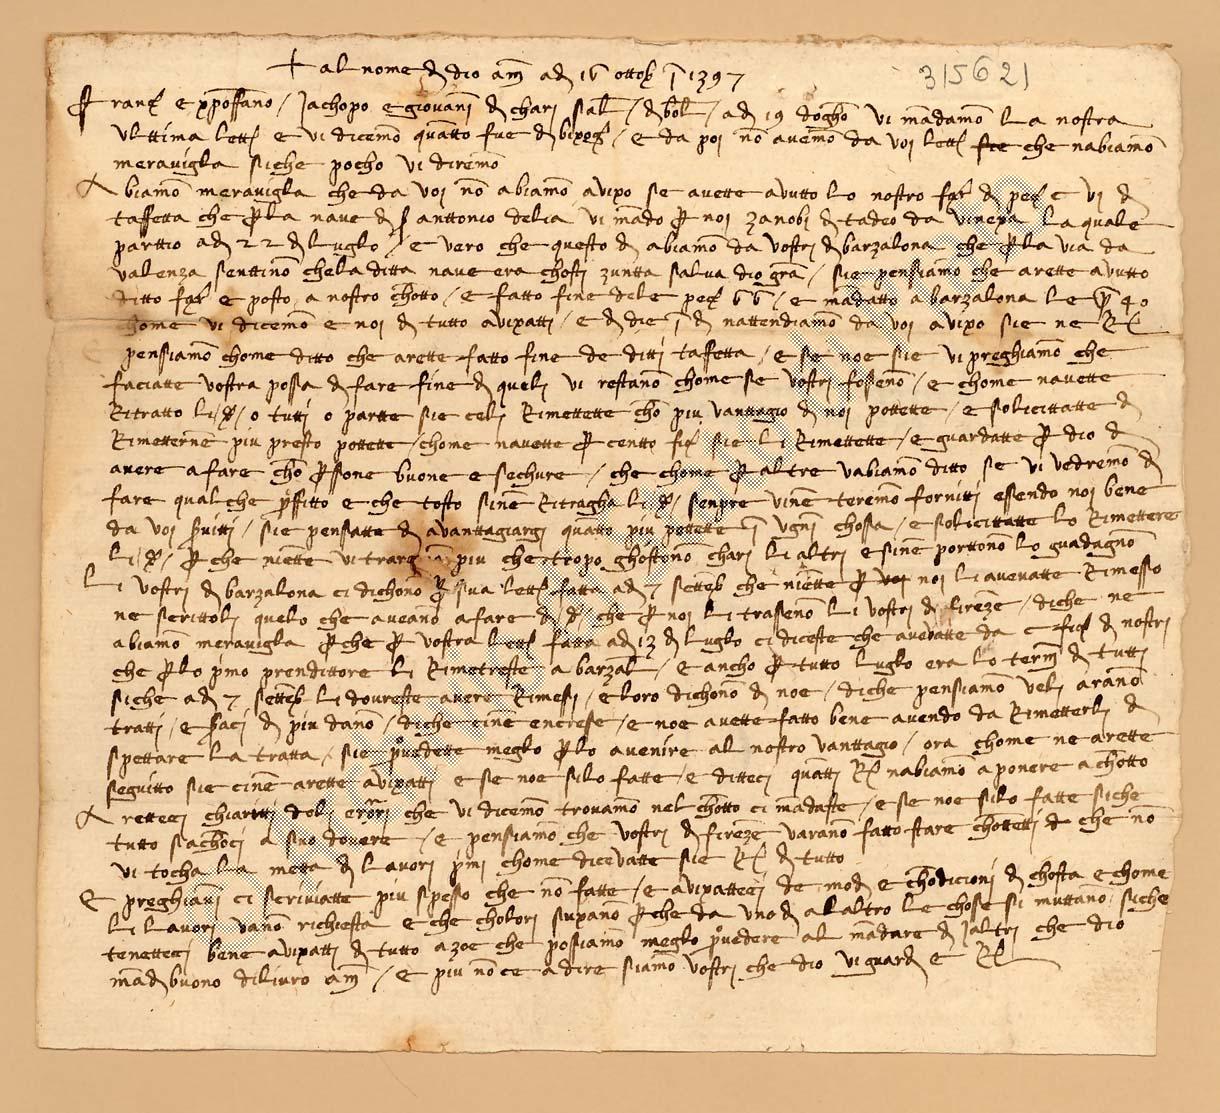 + al nome di dio am adi 16 ottob 1397
315621
Franc e xpoffano / Jachopo e giovani di chari sal / di bol / adi 19 dogho vi madamo la nostra
ulttima lett e vi dicemo quatto fue di bixog / e da poi no avemo da voi lett che nabiamo
meravigla siche pocho vi diremo
Abiamo meravigla che da voi no abiamo avixo se avette avutto lo nostro di pec c vi di
taffetta che p la nave di s anttonio delia vi mado p noi zanobi di tadeo da vinexa la quale
parttio adi 22 di luglo / e vero che questo di abiamo da vostri di barzalona che p la via da
valenza senttino che la ditta nave era chosti zuntta salva dio gra / sie pensiamo che arette avutto
ditto e posto a nostro chotto / e fatto fine dele pec 66 / e madatto a barzalona le 40
chome vi dicemo e noi di tutto avixatti / e di die di nattendiamo da voi avixo sie ne R
pensiamo chome ditto che arette fatto fine de ditti taffetta / e se noe sie vi preghiamo che
faciatte vostra possa di fare fine di queli vi restano chome se vostri fosseno / e chome navette
Ritratto li d / o tutti o partte sie celi Rimettette cho piu vanttagio di noi pottette / e solicittatte di
Rimetterne piu presto pottette / chome navette p centto fi sie li Rimettette / e guardatte p dio di
avere a fare cho psone buone e sechure / che chome p altre vabiamo ditto se vi vedremo di
fare qualche pffitto e che tosto sine Ritragha li d / senpre vine teremo fornitti essendo noi bene
da voi svitti / sie pensatte di avanttagiargi quatto piu pottette i ugni chossa / e solicittatte lo Rimettere
li d / p che niette vi piu che tropo ghostono chari li altri e sine porttono lo guadagno
Li vostri di barzalona ci dichono p sua lett fatta adi 7 setteb che niette p noi li avevatte Rimesso
ne scrittoli quelo che aveano a fare di d che p noi li trasseno li vostri di fireze / diche ne
abiamo meravigla p che p vostra lett fatta adi 13 di luglo ci diceste che avevatte da c fi di nostri
che p lo pmo prendittore li Rimetreste a barzal / e ancho p tutto luglo era lo term di tutti
siche adi 7 setteb li doureste avere Rimessi / e loro dichono di noe / diche pensiamo veli arano
tratti / e saci di piu dano / diche cine encrese / e noe avette fatto bene avendo da Rimetterli di
spettare la tratta / sie pvedette meglo p lo avenire al nostro vanttagio / ora chome ne arette
seguitto sie cine arette avixatti e se noe silo fatte / e ditteci quatti R nabiamo a ponere a chotto
Aretteci chiaritti doli erori che vi dicemo trovamo nel chotto ci madaste / e se noe silo fatte siche
tutto siachoci a suo dovere / e pensiamo che vostri di fireze varano fatto stare chottetti di che no
vi tocha la metta di lavori pmi chome dicevatte sie R di tutto
E preghiavi ci scriviatte piu spesso che no fatte / e avixatteci de modi e chodicioni di chosta e chome
li lavori vano richiesta e che cholori suxano p che da uno di alaltro le chose si muttano siche
tenetteci bene avixatti di tutto azoe che possiamo meglo pvedere al madare di Jaltri che dio
madi buono diliuro am / e piu no ce a dire siamo vostri che dio vi guardi e R